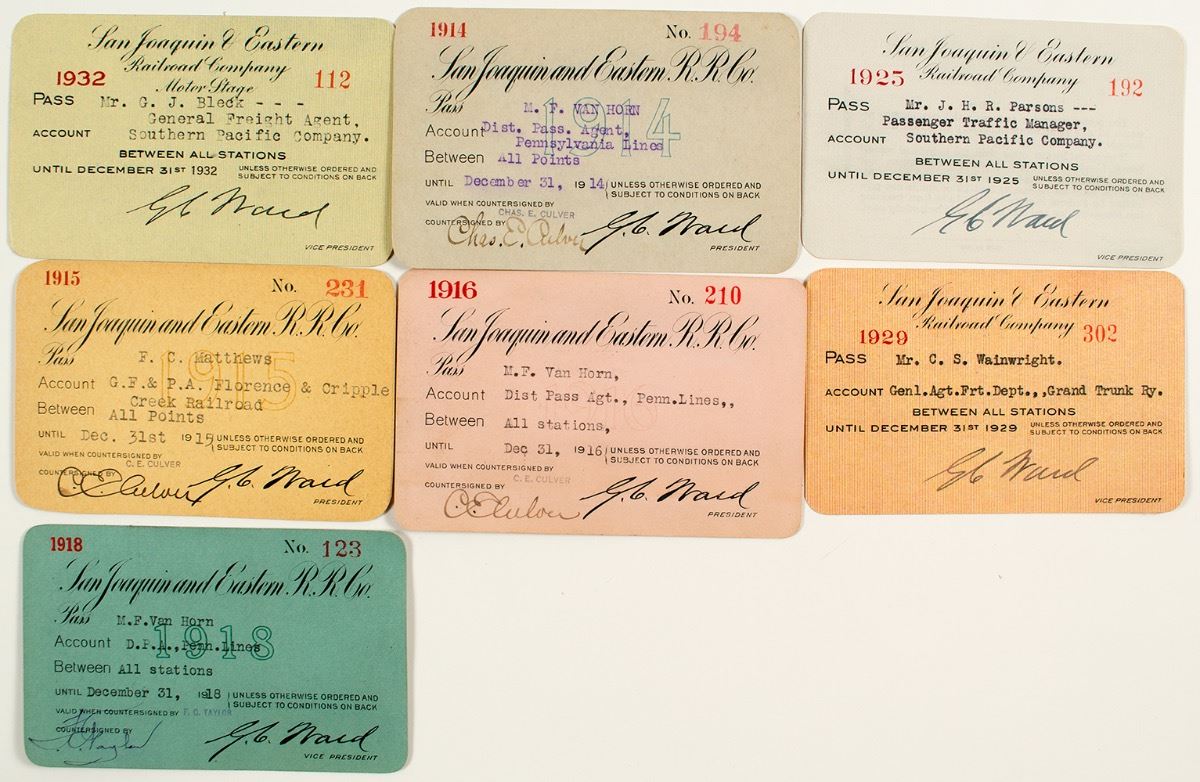 San Joaquin & Eastern
Railroad Company
1932 Motor Stage 112
PASS Mr. G. J. Bleck - - -
General Freight Agent,
ACCOUNT Southern Pacific Company.
BETWEEN ALL STATIONS
UNTIL DECEMBER 31ST 1932 UNLESS OTHERWISE ORDERED AND
SUBJECT TO CONDITIONS ON BACK
G C Ward
VICE PRESIDENT
1914 No. 194
San Joaquin and Eastern R.R. Co.
Pass M. F. VAN HORN
1914
Account Dist. Pass. Agent,
Pennsylvania Lines
Between All Points
UNTIL December 31, 1914 UNLESS OTHERWISE ORDERED AND
SUBJECT TO CONDITIONS ON BACK
VALID WHEN COUNTERSIGNED BY
CHAS. E. CULVER
COUNTERSIGNED BY
Chas. E. Culver G.C. Ward
PRESIDENT
San Joaquin & Eastern
Railroad Company
1925 192
PASS Mr. J. H. R. Parsons ---
Passenger Traffic Manager,
ACCOUNT Southern Pacific Company.
BETWEEN ALL STATIONS
UNTIL DECEMBER 31ST 1925 UNLESS OTHERWISE ORDERED AND
SUBJECT TO CONDITIONS ON BACK
G C Ward
VICE PRESIDENT
1915 No. 231
San Joaquin and Eastern R.R. Co.
Pass F. C. Matthews
1915
Account G.F.& P.A. Florence & Cripple
Creek Railroad
Between All Points
UNTIL Dec. 31st 1915 UNLESS OTHERWISE ORDERED AND
SUBJECT TO CONDITIONS ON BACK
VALID WHEN COUNTERSIGNED BY
C. E. CULVER
COUNTERSIGNED BY
C. E. Culver G.C. Ward
PRESIDENT
1916 No. 210
San Joaquin and Eastern R.R. Co.
Pass M.F. Van Horn,
1916
Account Dist Pass Agt., Penn.Lines,,
Between All stations,
UNTIL Dec 31, 1916 UNLESS OTHERWISE ORDERED AND
SUBJECT TO CONDITIONS ON BACK
VALID WHEN COUNTERSIGNED BY
C. E. CULVER
COUNTERSIGNED BY
C. E. Culver G.C. Ward
PRESIDENT
San Joaquin & Eastern
Railroad Company
1929 302
PASS Mr. C. S. Wainwright.
ACCOUNT Genl.Agt.Frt.Dept.,,Grand Trunk Ry.
BETWEEN ALL STATIONS
UNTIL DECEMBER 31ST 1929 UNLESS OTHERWISE ORDERED AND
SUBJECT TO CONDITIONS ON BACK
G C Ward
VICE PRESIDENT
1918 No. 123
San Joaquin and Eastern R.R. Co.
Pass M.F.Van Horn
1918
Account D.P.A.,Penn.Lines
Between All stations
UNTIL December 31, 1918 UNLESS OTHERWISE ORDERED AND
SUBJECT TO CONDITIONS ON BACK
VALID WHEN COUNTERSIGNED BY F. C. TAYLOR
COUNTERSIGNED BY
G.C. Ward
VICE PRESIDENT